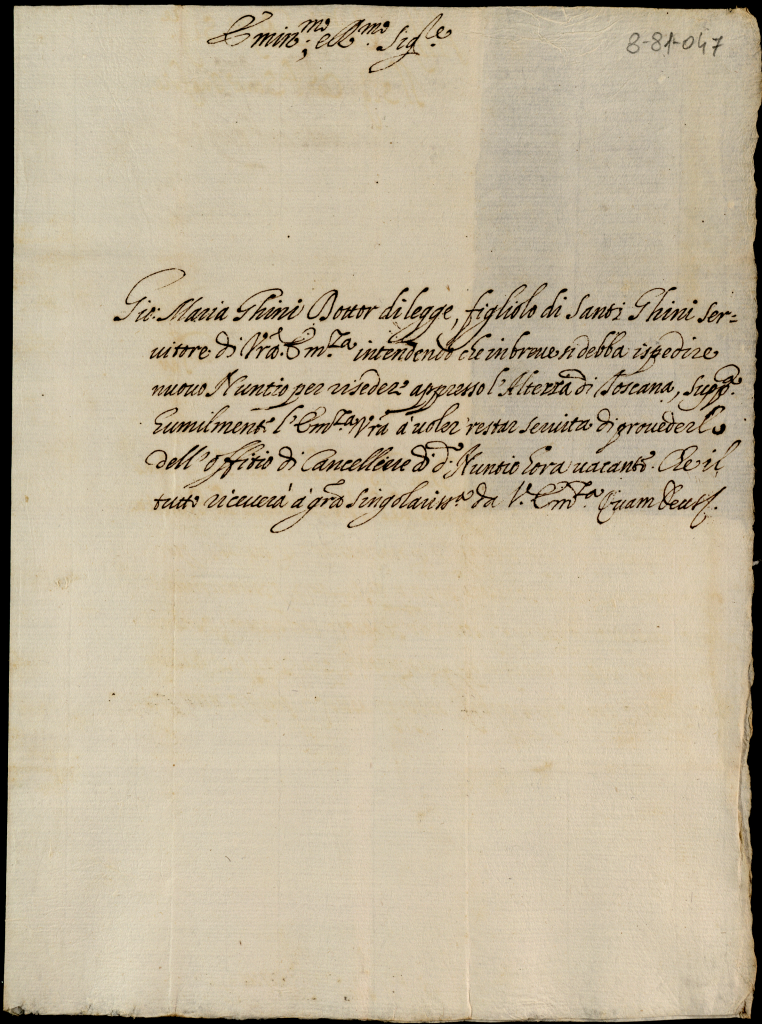 Emin.mo e R.mo Sig.re
8-81-047
Gio: Maria Ghini Dottor di legge, figliolo di Santi Ghini ser=
uitore di Vra. Em.za intendendo che in breue si debba ispedire
nuouo Nuntio per riseder appresso l'Altezza di Toscana, supp.ca
humilmente l'Em.za Vra à uoler restar seruita di prouederlo
dell'offitio di Cancelliere di d.o Nuntio hora uacante. Che il
tutto riceuerà à gra singolariss.a da V. Em.za Quam Deus